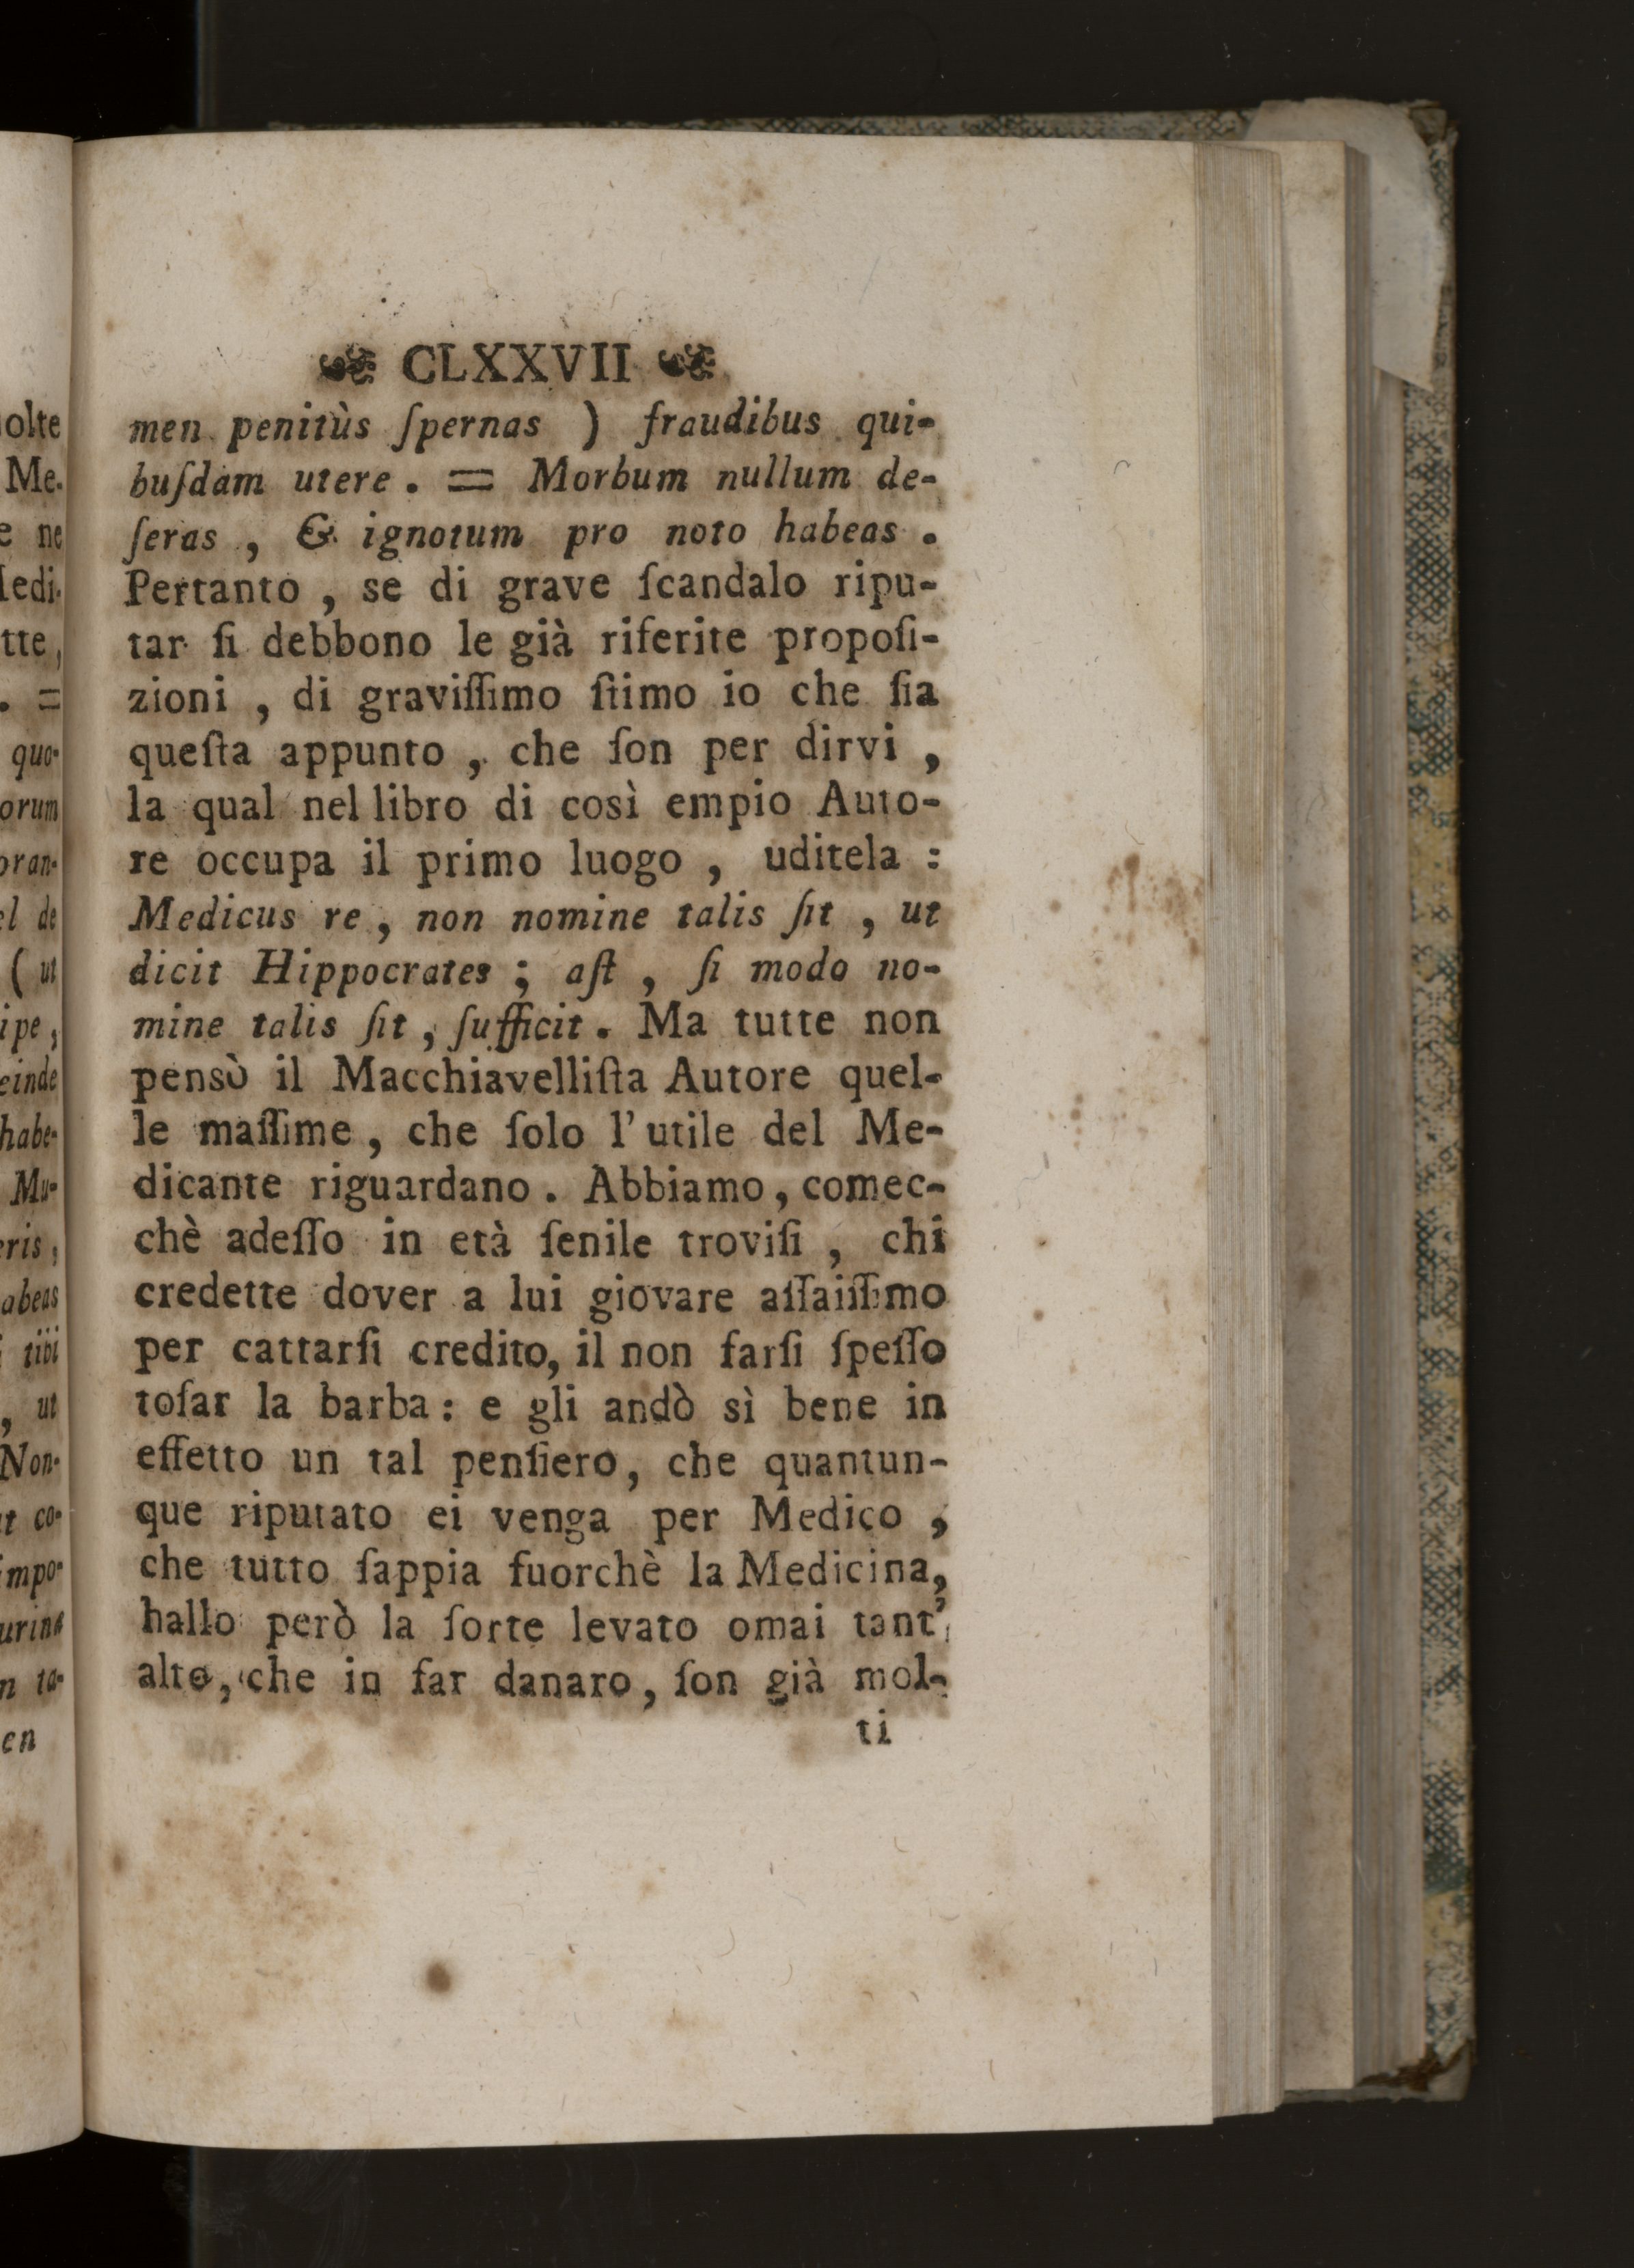 CLXXVII
men penitùs ſpernas ) fraudibus qui-
buſdam utere . = Morbum nullum de-
ſeras , & ignotum pro noto habeas .
Pertanto , se di grave ſcandalo ripu-
tar ſi debbono le già riferite propoſi-
zioni , di graviſſimo ſtimo io che ſia
queſta appunto , che ſon per dirvi ,
la qual nel libro di così empio Auto-
re occupa il primo luogo , uditela :
Medicus re , non nomine talis ſit , ut
dicit Hippocrates ; aſt , ſi modo no-
mine talis ſit , ſufficit . Ma tutte non
pensò il Macchiavelliſta Autore quel-
le maſſime , che ſolo l' utile del Me-
dicante riguardano . Abbiamo , comec-
chè adeſſo in età ſenile troviſi , chi
credette dover a lui giovare aſſaiſſimo
per cattarſi credito, il non farſi ſpeſſo
toſar la barba : e gli andò sì bene in
effetto un tal penſiero, che quantun-
que riputato ei venga per Medico ,
che tutto ſappia fuorchè la Medicina,
hallo però la ſorte levato omai tant'
alto, che in far danaro, ſon già mol-
ti
olte
Me-
e ne
Medi-
tte,
. =
quo-
orum
oran-
el de
( ut
ipe,
einde
habe-
Mu-
eris,
abeas
tibi
, ut
Non-
t co-
impo-
urina
n ta-
en